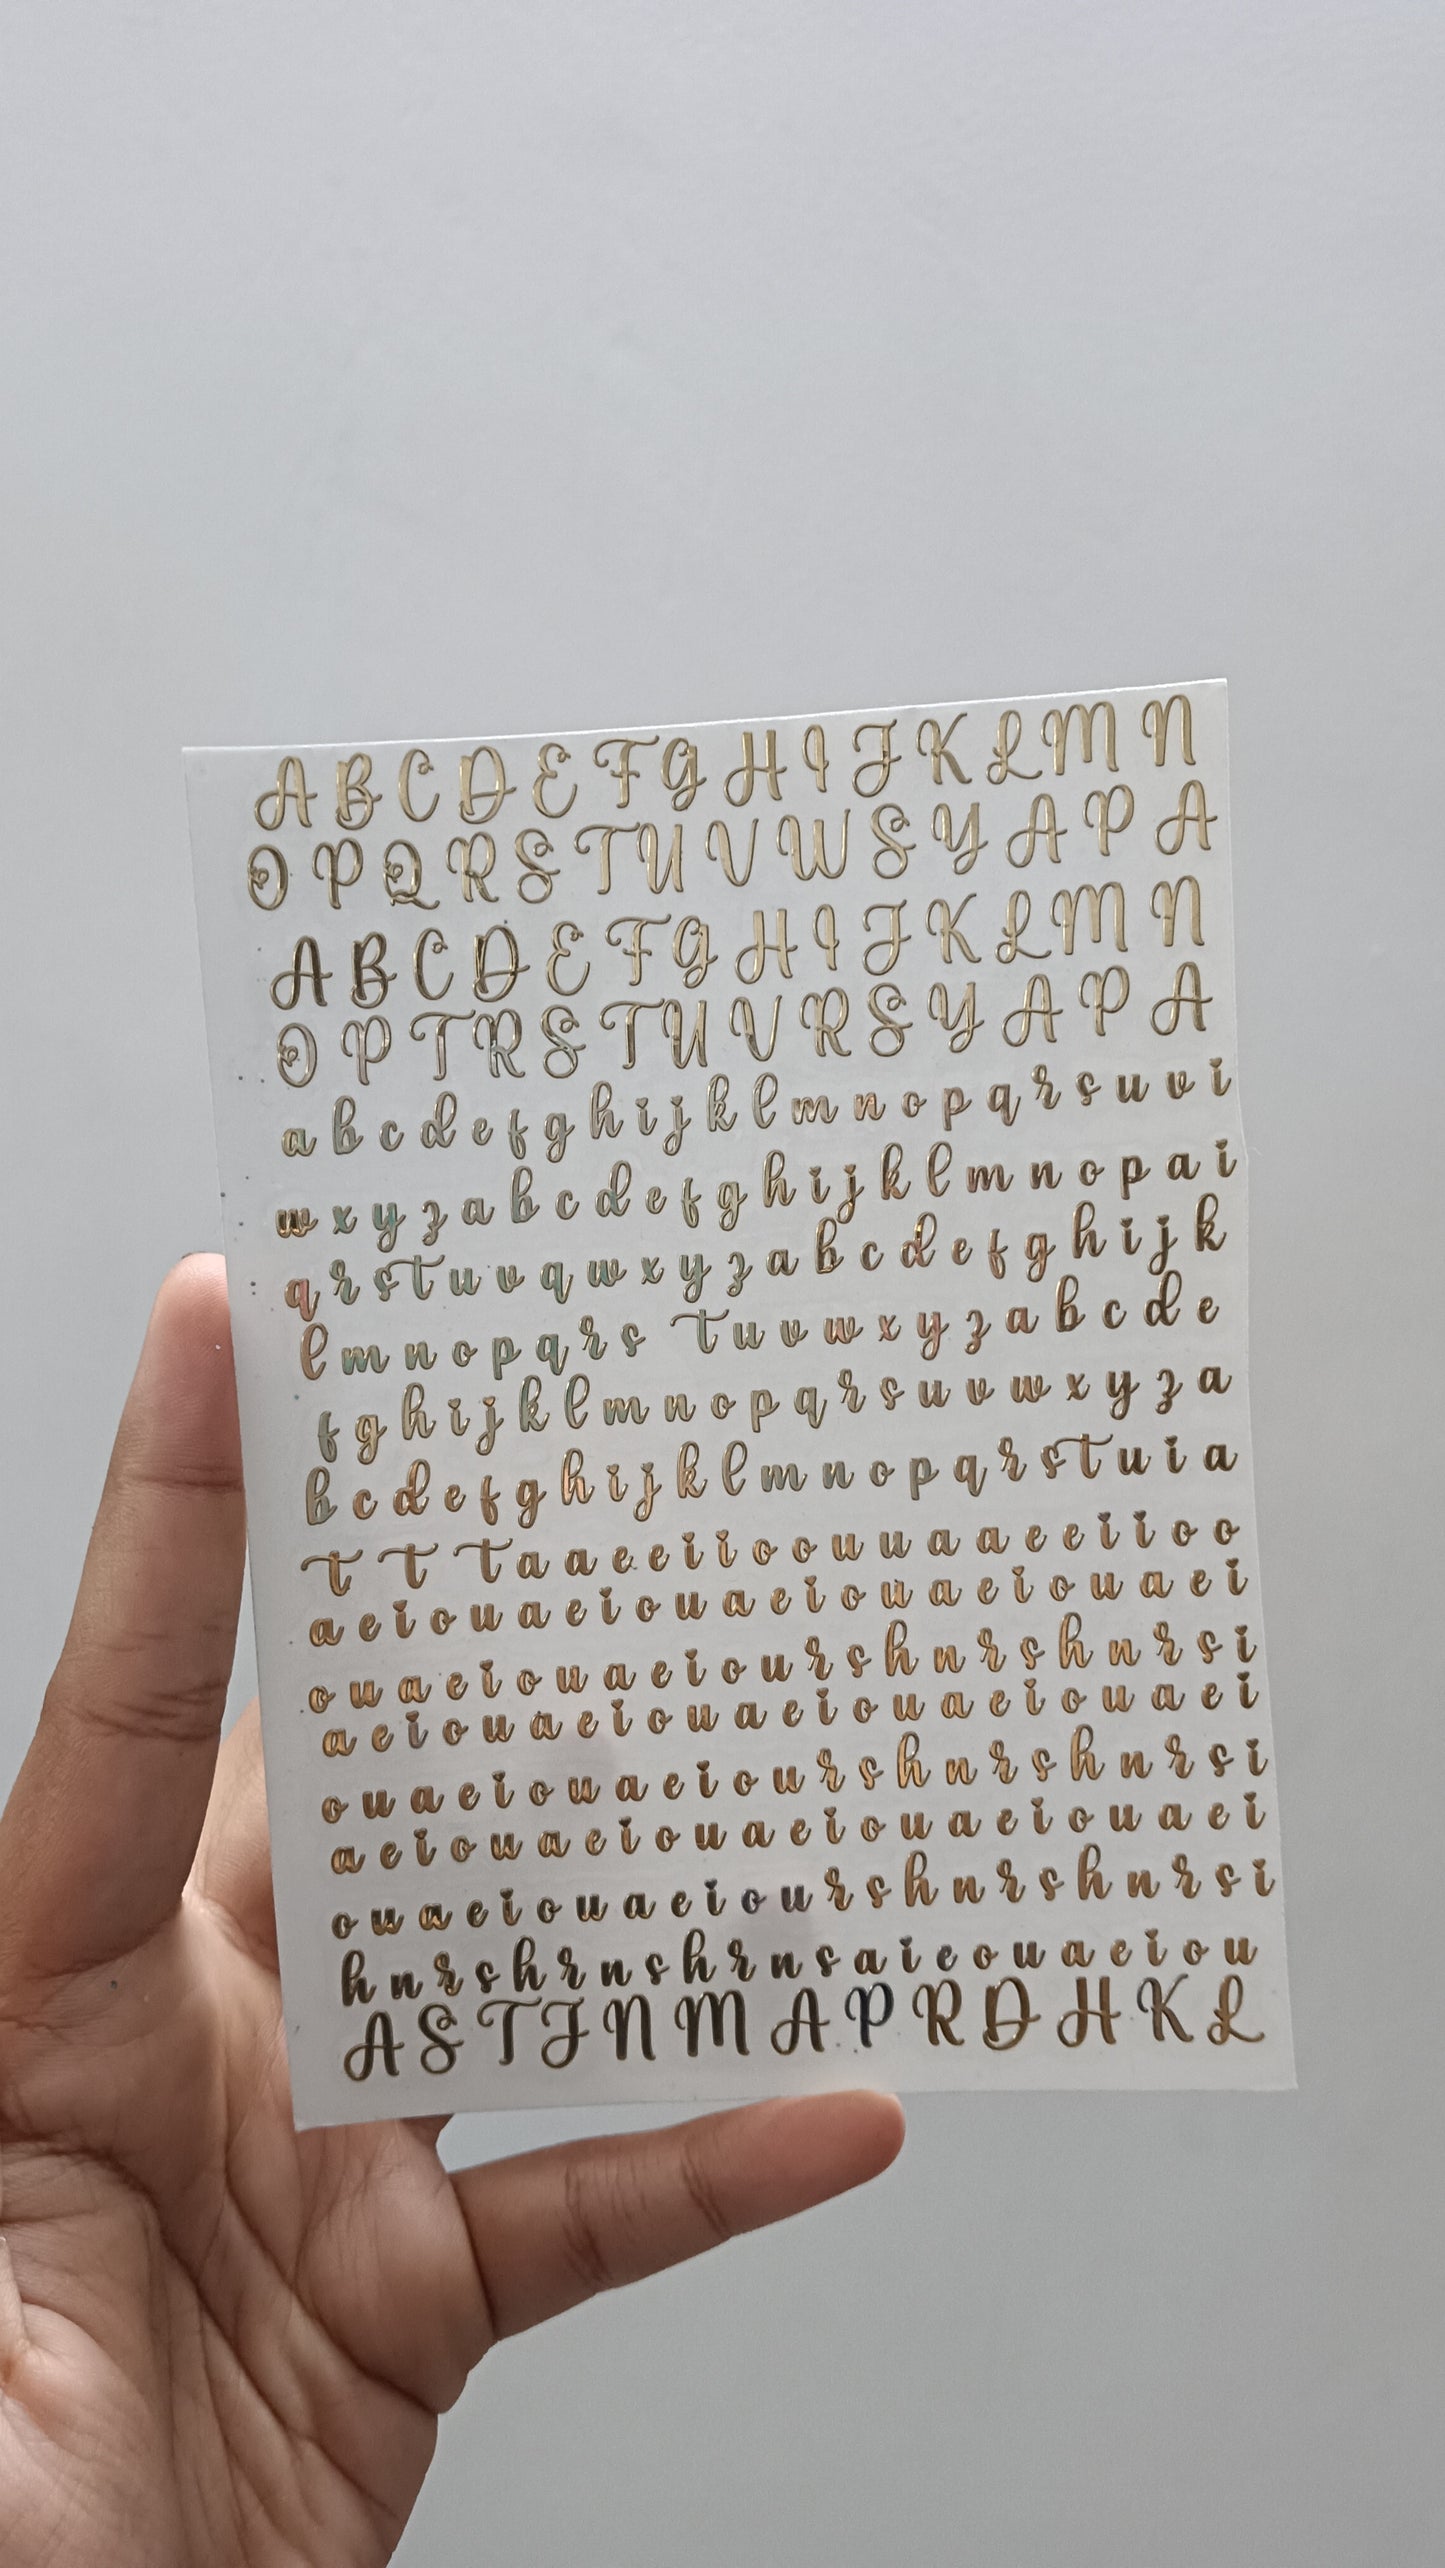 A B C D E F G H I J K L M N
O P Q R S T U V W S Y A P A
A B C D E F G H I J K L M N
O P T R S T U V R S Y A P A
a b c d e f g h i j k l m n o p q r s u v i
w x y z a b c d e f g h i j k l m n o p a i
q r s t u v q w x y z a b c d e f g h i j k
l m n o p q r s t u v w x y z a b c d e
f g h i j k l m n o p q r s u v w x y z a
b c d e f g h i j k l m n o p q r s t u i a
t t t a a e e i i o o u u a a e e i i o o
a e i o u a e i o u a e i o u a e i o u a e i
o u a e i o u a e i o u r s h n r s h n r s i
a e i o u a e i o u a e i o u a e i o u a e i
o u a e i o u a e i o u r s h n r s h n r s i
a e i o u a e i o u a e i o u a e i o u a e i
o u a e i o u a e i o u r s h n r s h n r s i
h n r s h r n s h r n s a i e o u a e i o u
A S T J N M A P R D H K L